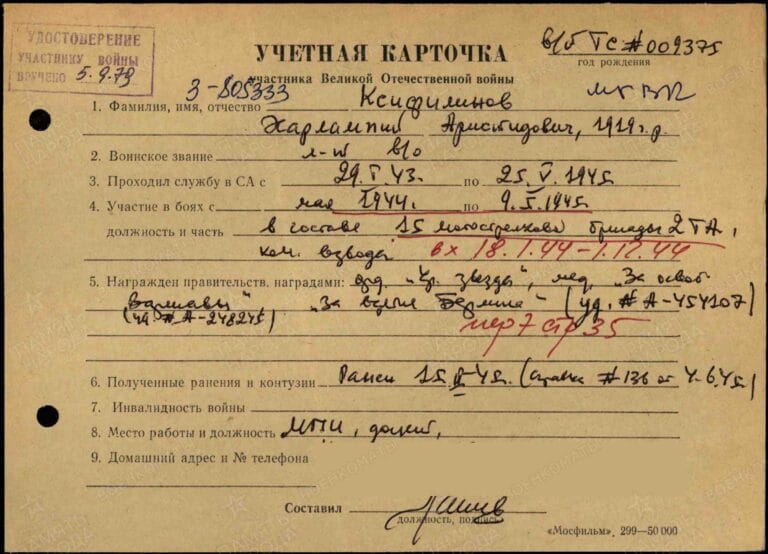 УДОСТОВЕРЕНИЕ
УЧАСТНИКУ ВОЙНЫ
ВРУЧЕНО 5.9.79
УЧЕТНАЯ КАРТОЧКА
в/б ТС # 009375
год рождения
участника Великой Отечественной войны
3-805333
1. Фамилия, имя, отчество Ксифилинов
Харлампий Аристидович, 1919 г.р.
2. Воинское звание л-т в/о
3. Проходил службу в СА с 29.V.43. по 25.V.1945.
4. Участие в боях с мая 1944г. по 9.5.1945.
должность и часть в составе 15 мотострелковой бригады 2 ТА,
ком. взвода вх 18.1.44-1.12.44
5. Награжден правительств. наградами: орд. "Кр. звезды", мед. "За освоб
Варшавы" "За взятие Берлина" (уд. # А-454107)
(уд. # А-248245)
пер 7 стр 35
6. Полученные ранения и контузии Ранен 15.II-45г. (справка # 136 от 4.6.45)
7. Инвалидность войны
8. Место работы и должность МПИ, доцент,
9. Домашний адрес и № телефона
Составил
должность, подпись
«Мосфильм», 299—50 000